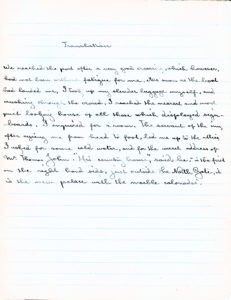 Translation
We reached the port after a very good crossing, which, however,
had not been without fatigue for me. As soon as the boat
had landed me, I took up my slender luggage myself, and
rushing through the crowd, I reached the nearest and most
quiet looking house of all those which displayed sign-
boards. I inquired for a room. The servant of the inn
after eyeing me from head to foot, led me up to the attic.
I asked for some cold water, and for the exact address of
Mr. Thomas John. "His country house", said he, "is the first
on the right hand side, just outside the North Gate, it
is the new palace with the marble colonades.